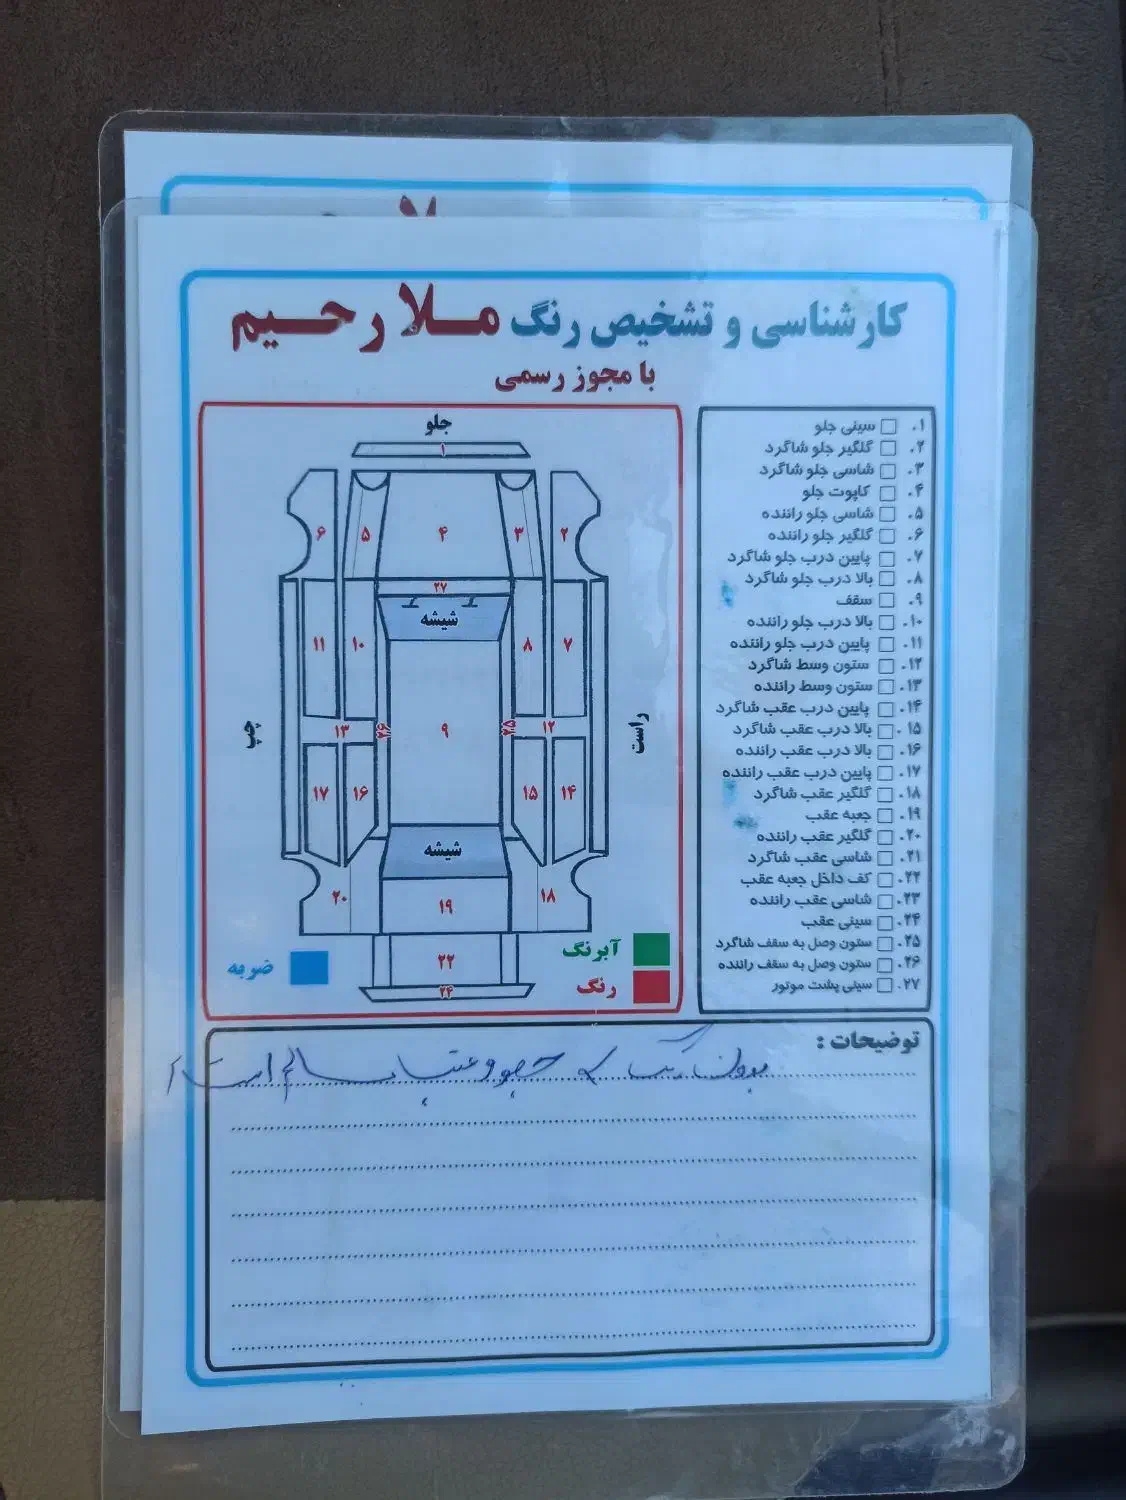 ملا رحیم
کارشناسی و تشخیص رنگ ملا رحیم
با مجوز رسمی
جلو
۱
۶ ۵ ۴ ۳ ۲
۲۷
شیشه
۱۱ ۱۰ ۸ ۷
چپ ۱۳ ۲۶ ۹ ۲۵ ۱۲ راست
۱۷ ۱۶ ۱۵ ۱۴
شیشه
۲۰ ۱۹ ۱۸
۲۲
۲۴
ضربه
آبرنگ
رنگ
۱. سینی جلو
۲. گلگیر جلو شاگرد
۳. شاسی جلو شاگرد
۴. کاپوت جلو
۵. شاسی جلو راننده
۶. گلگیر جلو راننده
۷. پایین درب جلو شاگرد
۸. بالا درب جلو شاگرد
۹. سقف
۱۰. بالا درب جلو راننده
۱۱. پایین درب جلو راننده
۱۲. ستون وسط شاگرد
۱۳. ستون وسط راننده
۱۴. پایین درب عقب شاگرد
۱۵. بالا درب عقب شاگرد
۱۶. بالا درب عقب راننده
۱۷. پایین درب عقب راننده
۱۸. گلگیر عقب شاگرد
۱۹. جعبه عقب
۲۰. گلگیر عقب راننده
۲۱. شاسی عقب شاگرد
۲۲. کف داخل جعبه عقب
۲۳. شاسی عقب راننده
۲۴. سینی عقب
۲۵. ستون وصل به سقف شاگرد
۲۶. ستون وصل به سقف راننده
۲۷. سینی پشت موتور
توضیحات :
بدون رنگ جلو و عقب سالم است